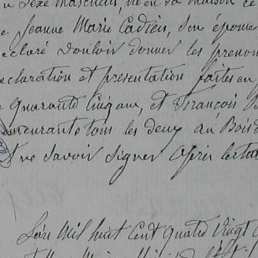 Sexe Masculin, né en sa maison ce
Jeanne Marie Cadieu, son épouse
déclaré vouloir donner les prenoms
éclaration et présentation faites en
Quarante Cinq ans, et François
meurants tous les deux au Bois
ne savoir signer après lecture
L'an Mil huit Cent Quatre Vingt